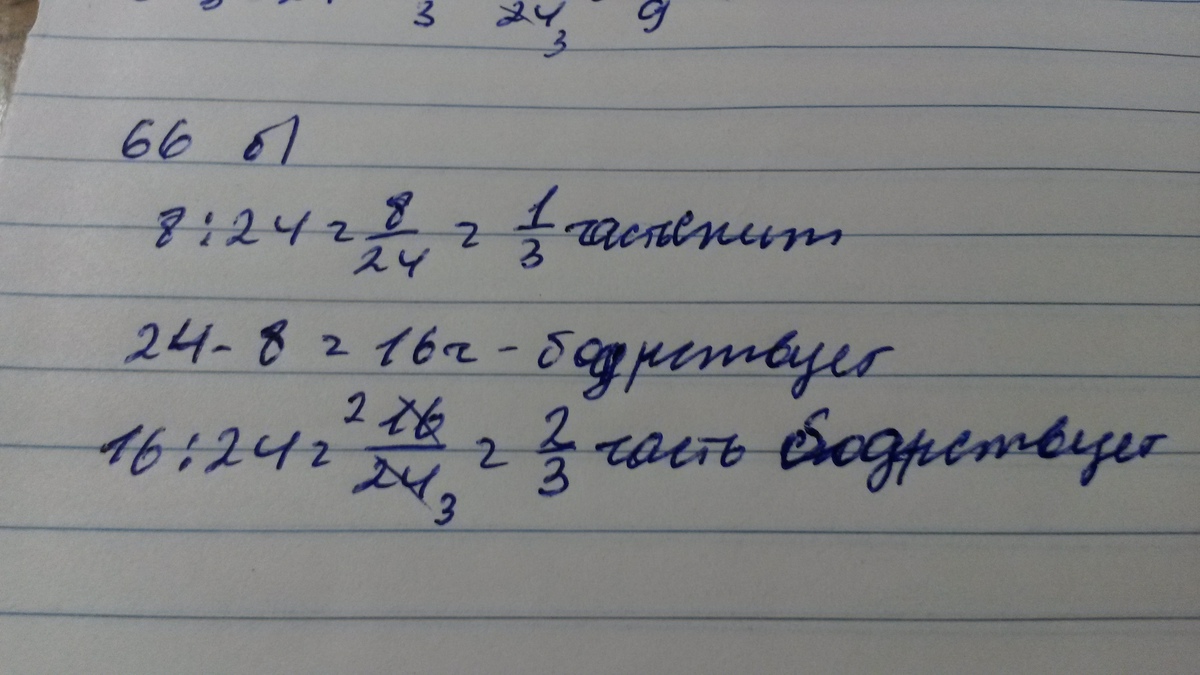 3 24 3 9
66 б)
8 : 24 = 8/24 = 1/3 часть спит
24 - 8 = 16 ч - бодрствует
16 : 24 = 2 16/24 3 = 2/3 часть бодрствует